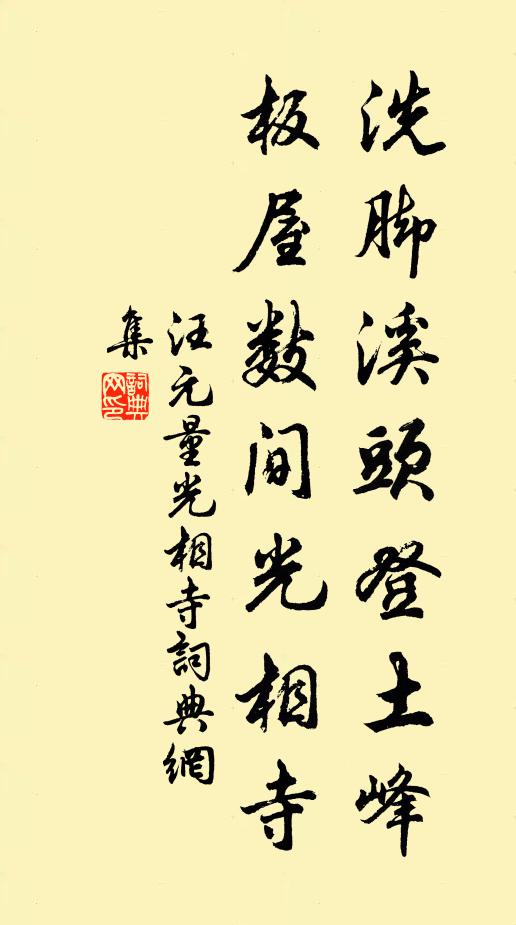 洗脚溪頭登土峰
板屋数间光相寺
汪元量光相寺詞典網
集
詞典网印